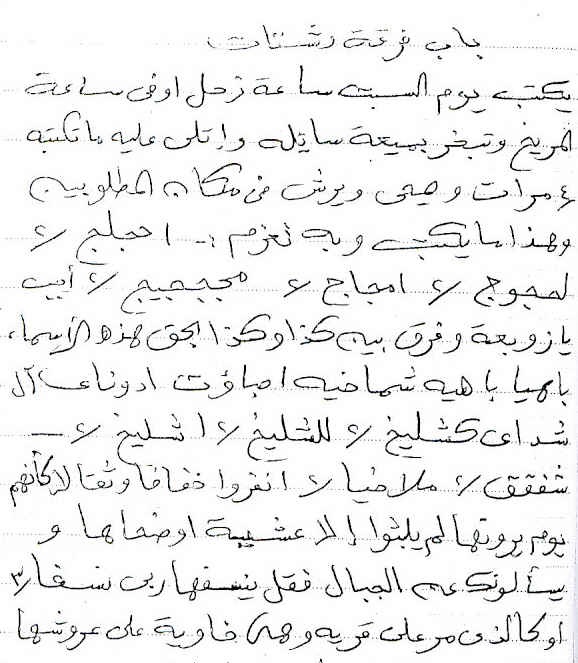 باب فرقة وشتات
يكتب يوم السبت ساعة زحل اوفى ساعة
المريخ وتبخر بميعة سايله واتلى عليه ما تكتبه
٤ مرات وهيى ويرش فى مكان المطلوبين
وهذا ما يكتب وبه تعزم :- احبلج ٢
لمجوج ٢ امجاج ٢ مججبيج ٢ أجب
يازوبعة وفرق بين كذا وكذا بحق هذه الأسماء
باهيا باهيه شماخيه اصباؤت ادوناى آل
شداى كشليخ ٢ للشليخ ٢ اشليخ ٢ —
شفقق ٢ ملاخيا ٢ انفروا خفافا وثقالا كأنهم
يوم يرونها لم يلبثوا إلا عشية اوضحاها و
يسألونك عن الجبال فقل ينسفها ربى نسفا ٣
اوكالذى مر على قريه وهى خاوية على عروشها